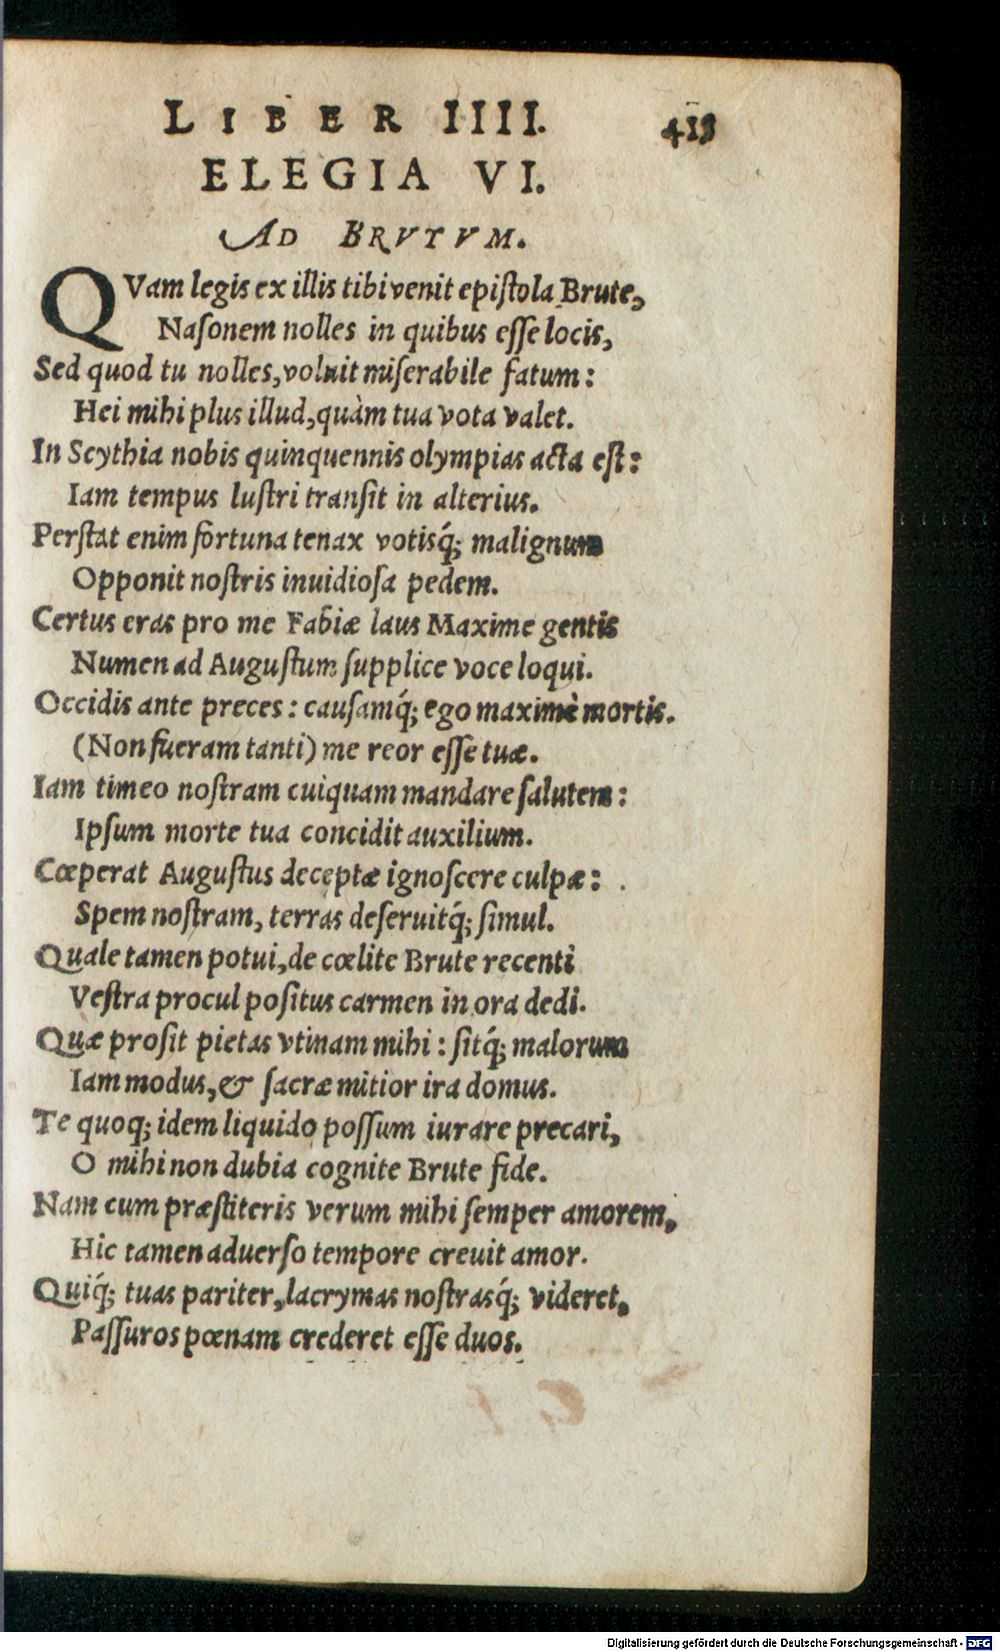 LIBER IIII. 413
ELEGIA VI.
AD BRVTVM.
QVam legis ex illis tibi venit epiſtola Brute,
Naſonem nolles in quibus eſſe locis,
Sed quod tu nolles, voluit miſerabile fatum:
Hei mihi plus illud, quàm tua vota valet.
In Scythia nobis quinquennis olympias acta eſt:
Iam tempus luſtri tranſit in alterius.
Perſtat enim fortuna tenax votisq́; malignum
Opponit noſtris inuidioſa pedem.
Certus eras pro me Fabiæ laus Maxime gentis
Numen ad Auguſtum ſupplice voce loqui.
Occidis ante preces: cauſamq́; ego maximè mortis.
(Non fueram tanti) me reor eſſe tuæ.
Iam timeo noſtram cuiquam mandare ſalutem:
Ipſum morte tua concidit auxilium.
Cœperat Auguſtus deceptæ ignoſcere culpæ:
Spem noſtram, terras deſeruitq́; ſimul.
Quale tamen potui, de cœlite Brute recenti
Veſtra procul poſitus carmen in ora dedi.
Quæ proſit pietas vtinam mihi: ſitq́; malorum
Iam modus, & ſacræ mitior ira domus.
Te quoq; idem liquido poſſum iurare precari,
O mihi non dubia cognite Brute fide.
Nam cum præſtiteris verum mihi ſemper amorem,
Hic tamen aduerſo tempore creuit amor.
Quiq́; tuas pariter, lacrymas noſtrasq́; videret,
Paſſuros pœnam crederet eſſe duos.
Digitalisierung gefördert durch die Deutsche Forschungsgemeinschaft - DFG